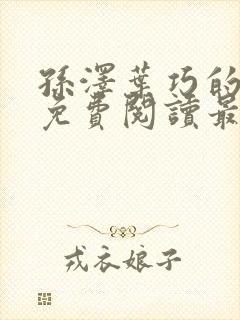 孫澤葉巧的
免費閱讀最
戎衣娘子